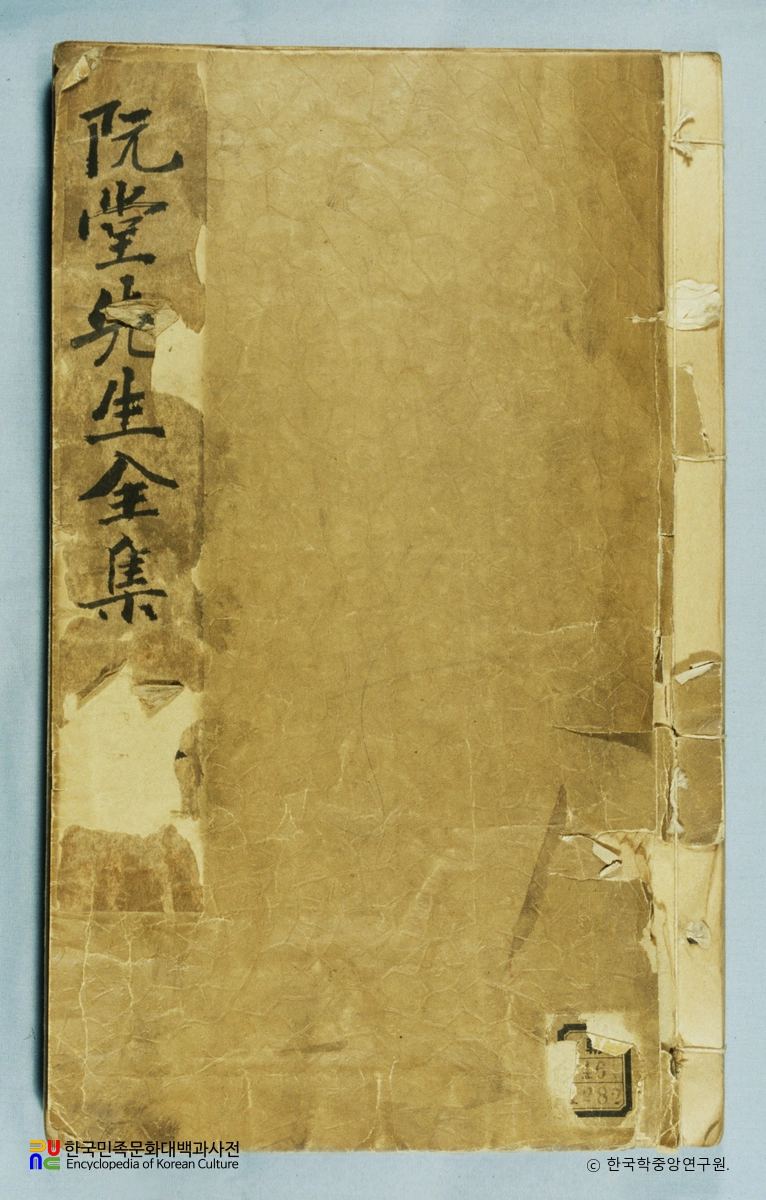 阮堂先生全集
16
2282
한국민족문화대백과사전
Encyclopedia of Korean Culture
ⓒ 한국학중앙연구원.